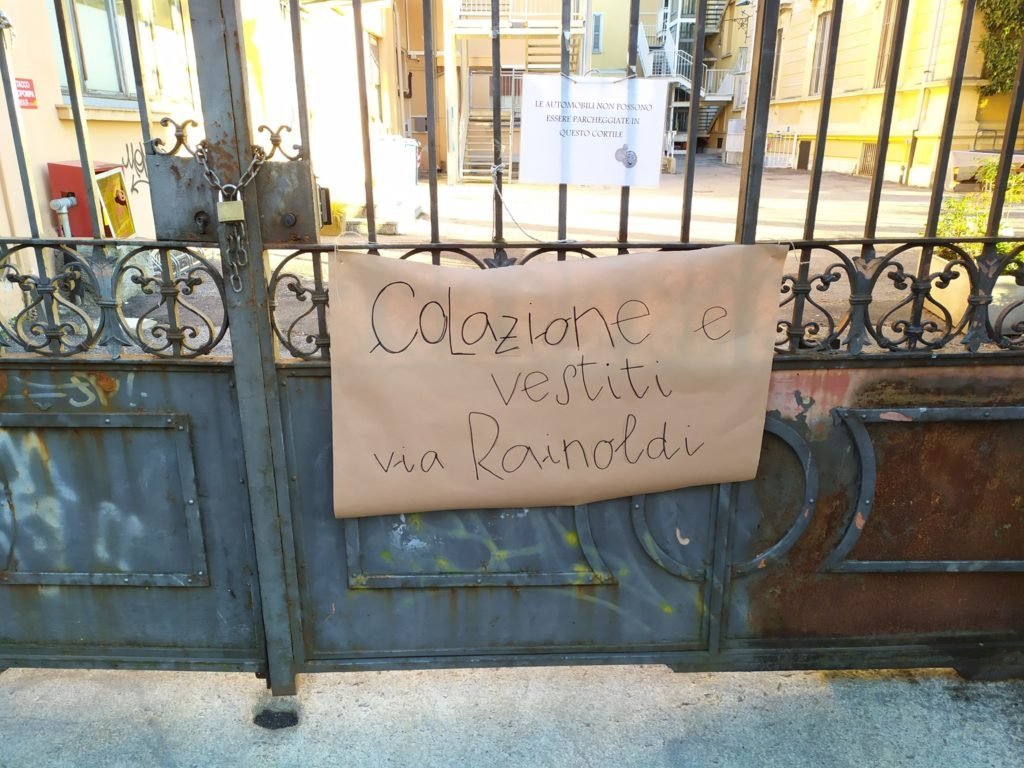 LE AUTOMOBILI NON POSSONO
ESSERE PARCHEGGIATE IN
QUESTO CORTILE
Colazione e
vestiti
via Rainoldi